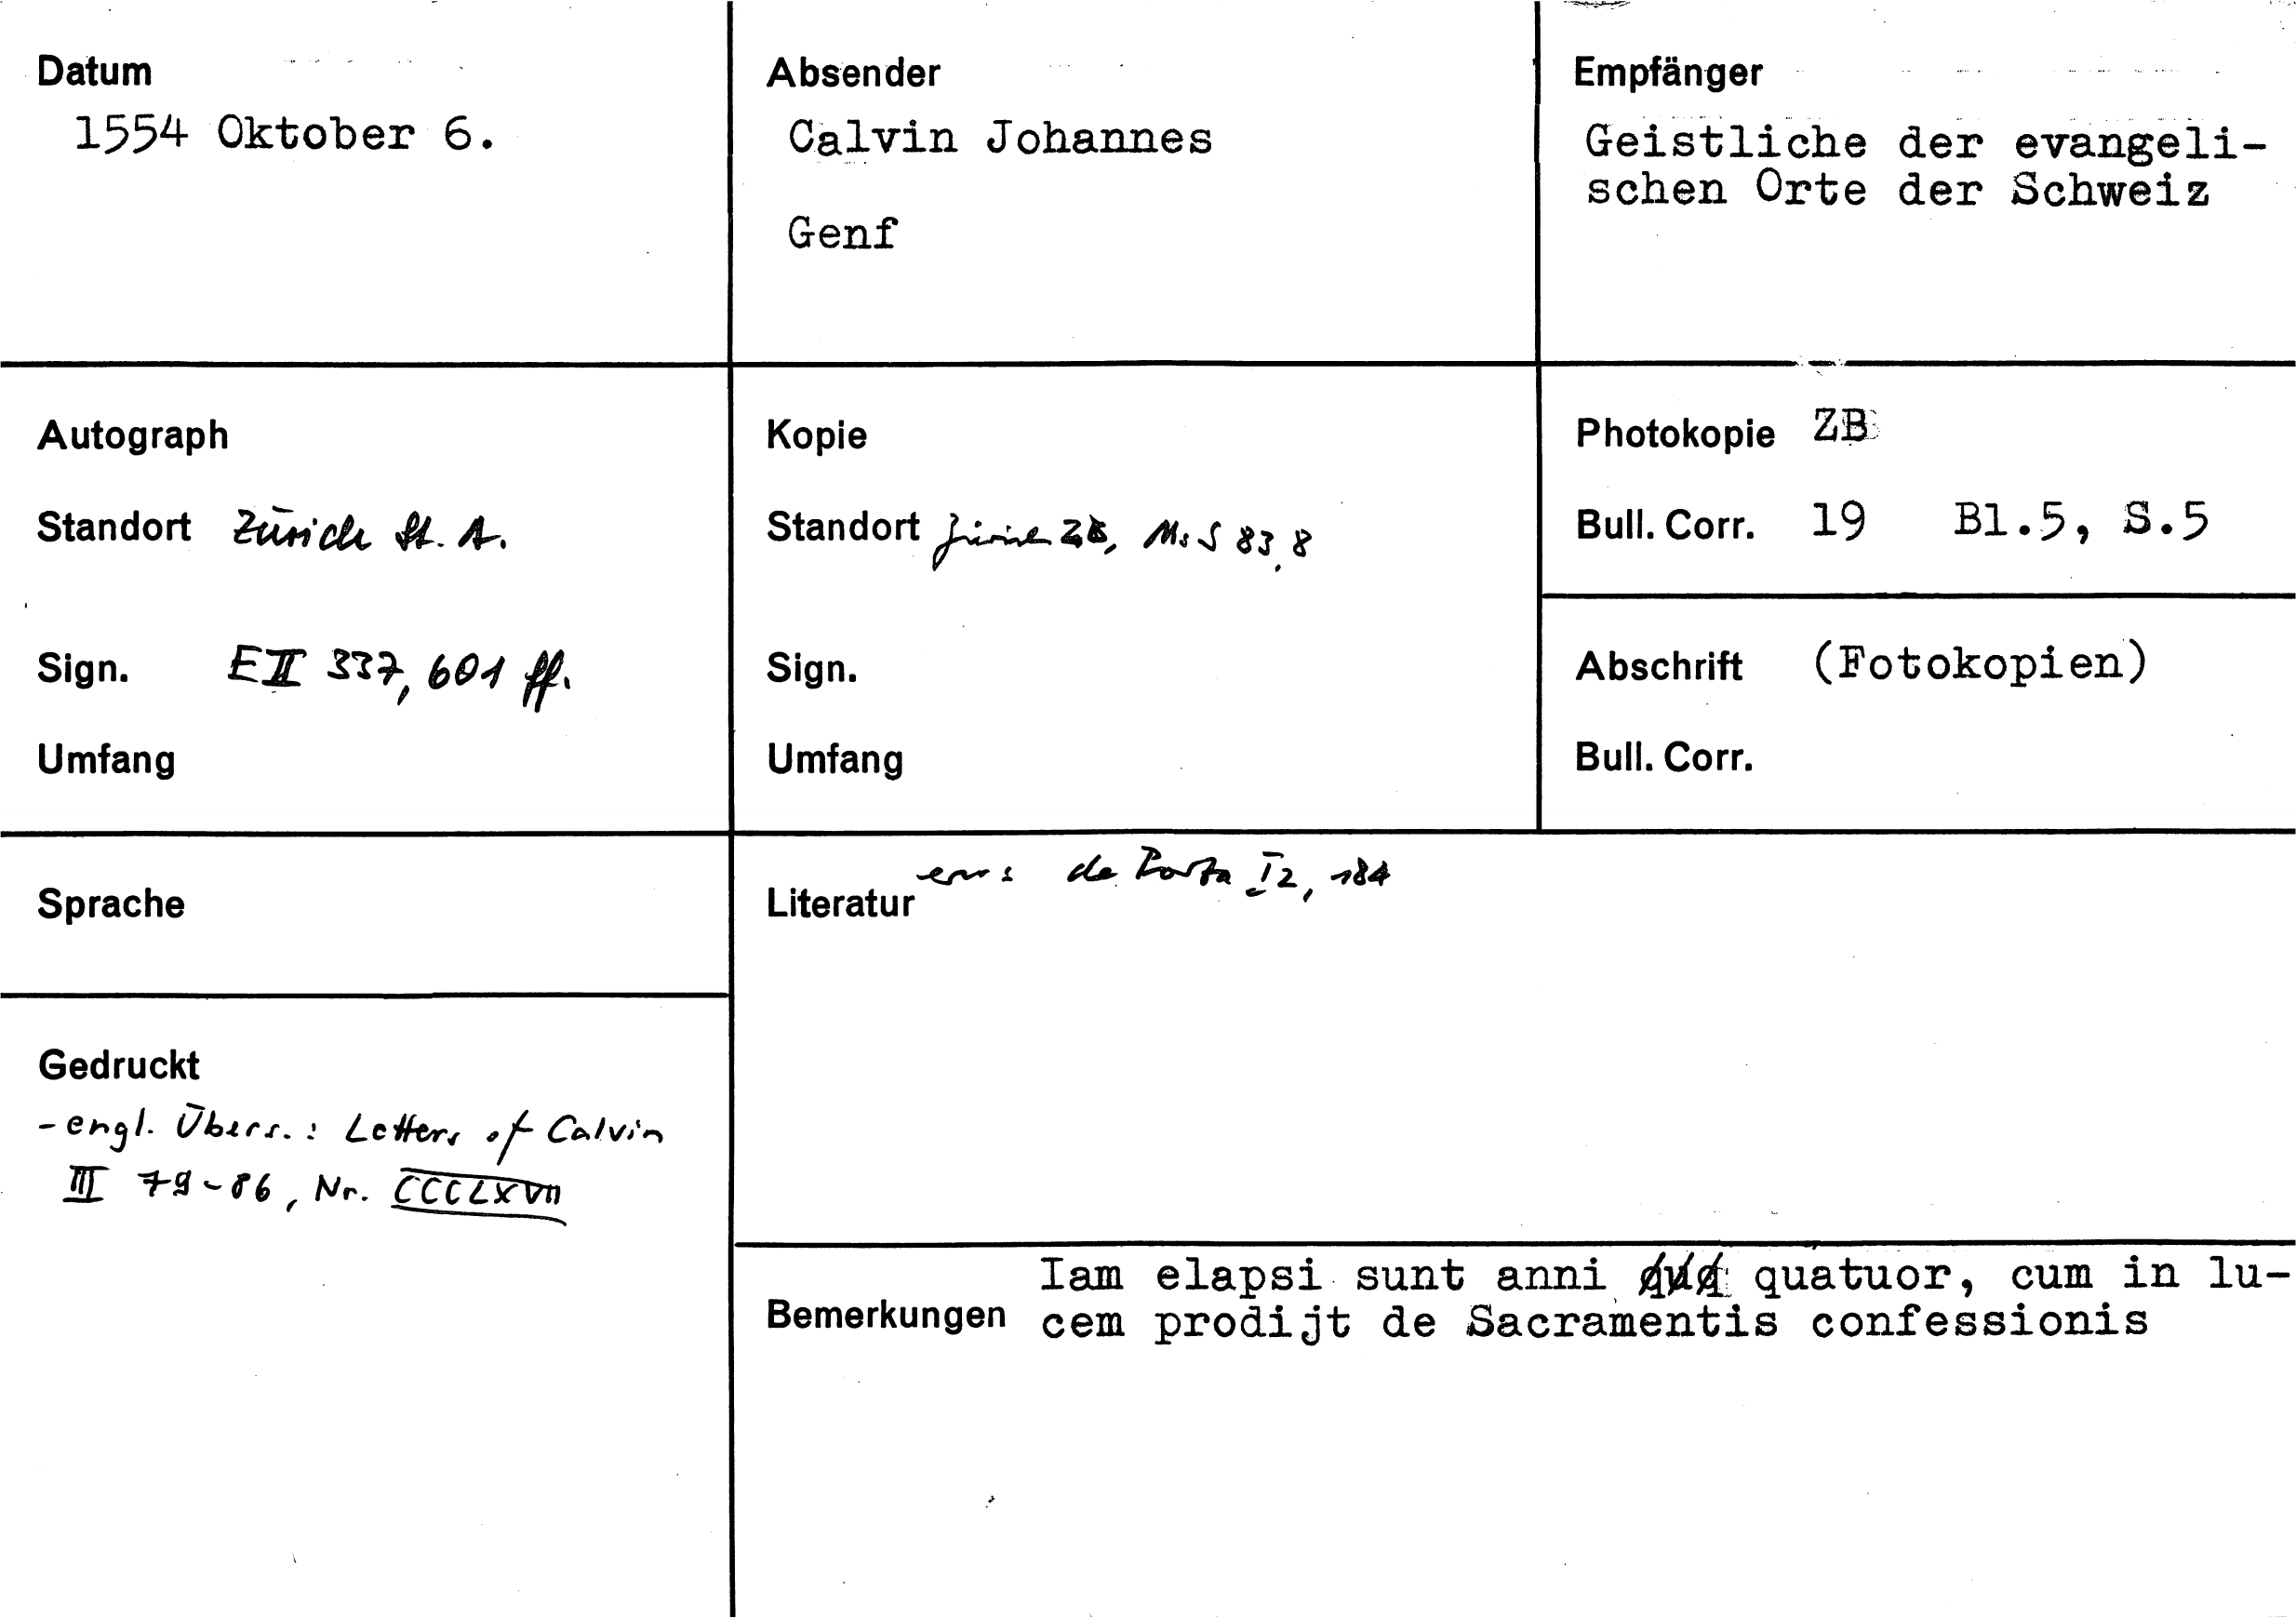 Datum
1554 Oktober 6.
Absender
Calvin Johannes
Genf
Empfänger
Geistliche der evangeli-
schen Orte der Schweiz
Autograph
Standort Zürich St. A.
Sign. E II 337, 601 ff.
Umfang
Kopie
Standort Zürich ZB, Ms S 83, 8
Sign.
Umfang
Photokopie ZB
Bull. Corr. 19 Bl.5, S.5
Abschrift (Fotokopien)
Bull. Corr.
Sprache
Literatur de Porta I 2, 184
Gedruckt
- engl. Übers.: Letters of Calvin
III 79-86, Nr. CCCLXVII
Bemerkungen
Iam elapsi sunt anni quatuor, cum in lu-
cem prodijt de Sacramentis confessionis